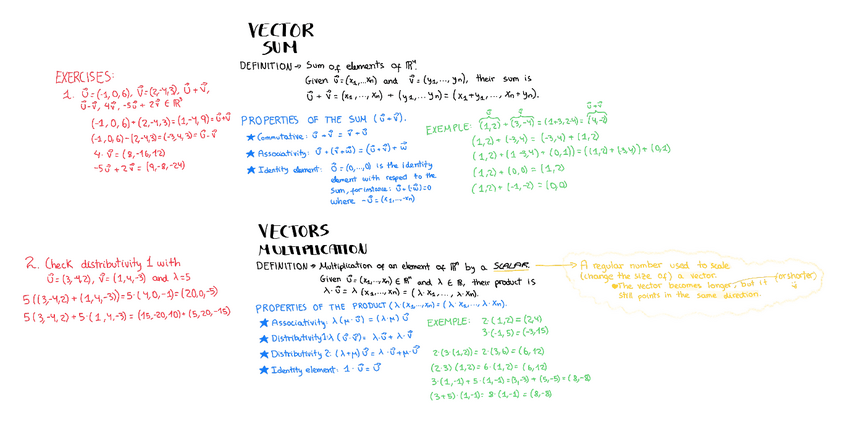 VECTOR
SUM
DEFINITION → Sum of elements of ℝⁿ.
Given u⃗=(x₁,...xₙ) and v⃗=(y₁,..., yₙ), their sum is
u⃗ + v⃗ = (x₁,..., xₙ) + (y₁,... yₙ) = (x₁+y₁, ..., xₙ+yₙ).
EXERCISES:
1. u⃗=(-1,0,6), v⃗=(2,-4,3), u⃗+v⃗,
u⃗-v⃗, 4v⃗, -5u⃗+2v⃗ ∈ ℝ³
(-1,0,6)+(2,-4,3)=(1,-4,9)=u⃗+v⃗
(-1,0,6)-(2,-4,3)=(-3,4,3)=u⃗-v⃗
4·v⃗=(8,-16,12)
-5u⃗+2v⃗=(9,-8,-24)
PROPERTIES OF THE SUM (u⃗+v⃗).
★ Commutative: u⃗+v⃗=v⃗+u⃗
★ Associativity: u⃗+(v⃗+w⃗)=(u⃗+v⃗)+w⃗
★ Identity element: 0⃗=(0,...,0) is the identity
element with respect to the
sum, for instance: u⃗+(-u⃗)=0
where -u⃗=(x₁,...,-xₙ)
u⃗ v⃗ u⃗+v⃗
EXEMPLE: (1,2)+(3,-4)=(1+3,2-4)=(4,-2)
(1,2)+(-3,4)=(-3,4)+(1,2)
(1,2)+((-3,4)+(0,1))=((1,2)+(-3,4))+(0,1)
(1,2)+(0,0)=(1,2)
(1,2)+(-1,-2)=(0,0)
VECTORS
MULTIPLICATION
DEFINITION → Multiplication of an element of ℝⁿ by a SCALAR
Given u⃗=(x₁,...,xₙ) ∈ ℝⁿ and λ ∈ ℝ, their product is
λ·u⃗=λ·(x₁,...,xₙ)=(λ·x₁,..., λ·xₙ).
A regular number used to scale
(change the size of) a vector.
The vector becomes longer, but it (or shorter)
still points in the same direction.
2. Check distributivity 1 with
u⃗=(3,-4,2), v⃗=(1,4,-3) and λ=5
5((3,-4,2)+(1,4,-3))=5·(4,0,-1)=(20,0,-5)
5(3,-4,2)+5·(1,4,-3)=(15,-20,10)+(5,20,-15)
PROPERTIES OF THE PRODUCT (λ(x₁,...,xₙ)=(λx₁,...,λ·xₙ).
★ Associativity: λ(μ·u⃗)=(λ·μ)u⃗
★ Distributivity 1: λ(u⃗+v⃗)=λ·u⃗+λ·v⃗
★ Distributivity 2: (λ+μ)u⃗=λ·u⃗+μ·u⃗
★ Identity element: 1·u⃗=u⃗
EXEMPLE: 2·(1,2)=(2,4)
3·(-1,5)=(-3,15)
2·(3·(1,2))=2·(3,6)=(6,12)
(2·3)(1,2)=6·(1,2)=(6,12)
3·(1,-1)+5·(1,-1)=(3,-3)+(5,-5)=(8,-8)
(3+5)·(1,-1)=8·(1,-1)=(8,-8)